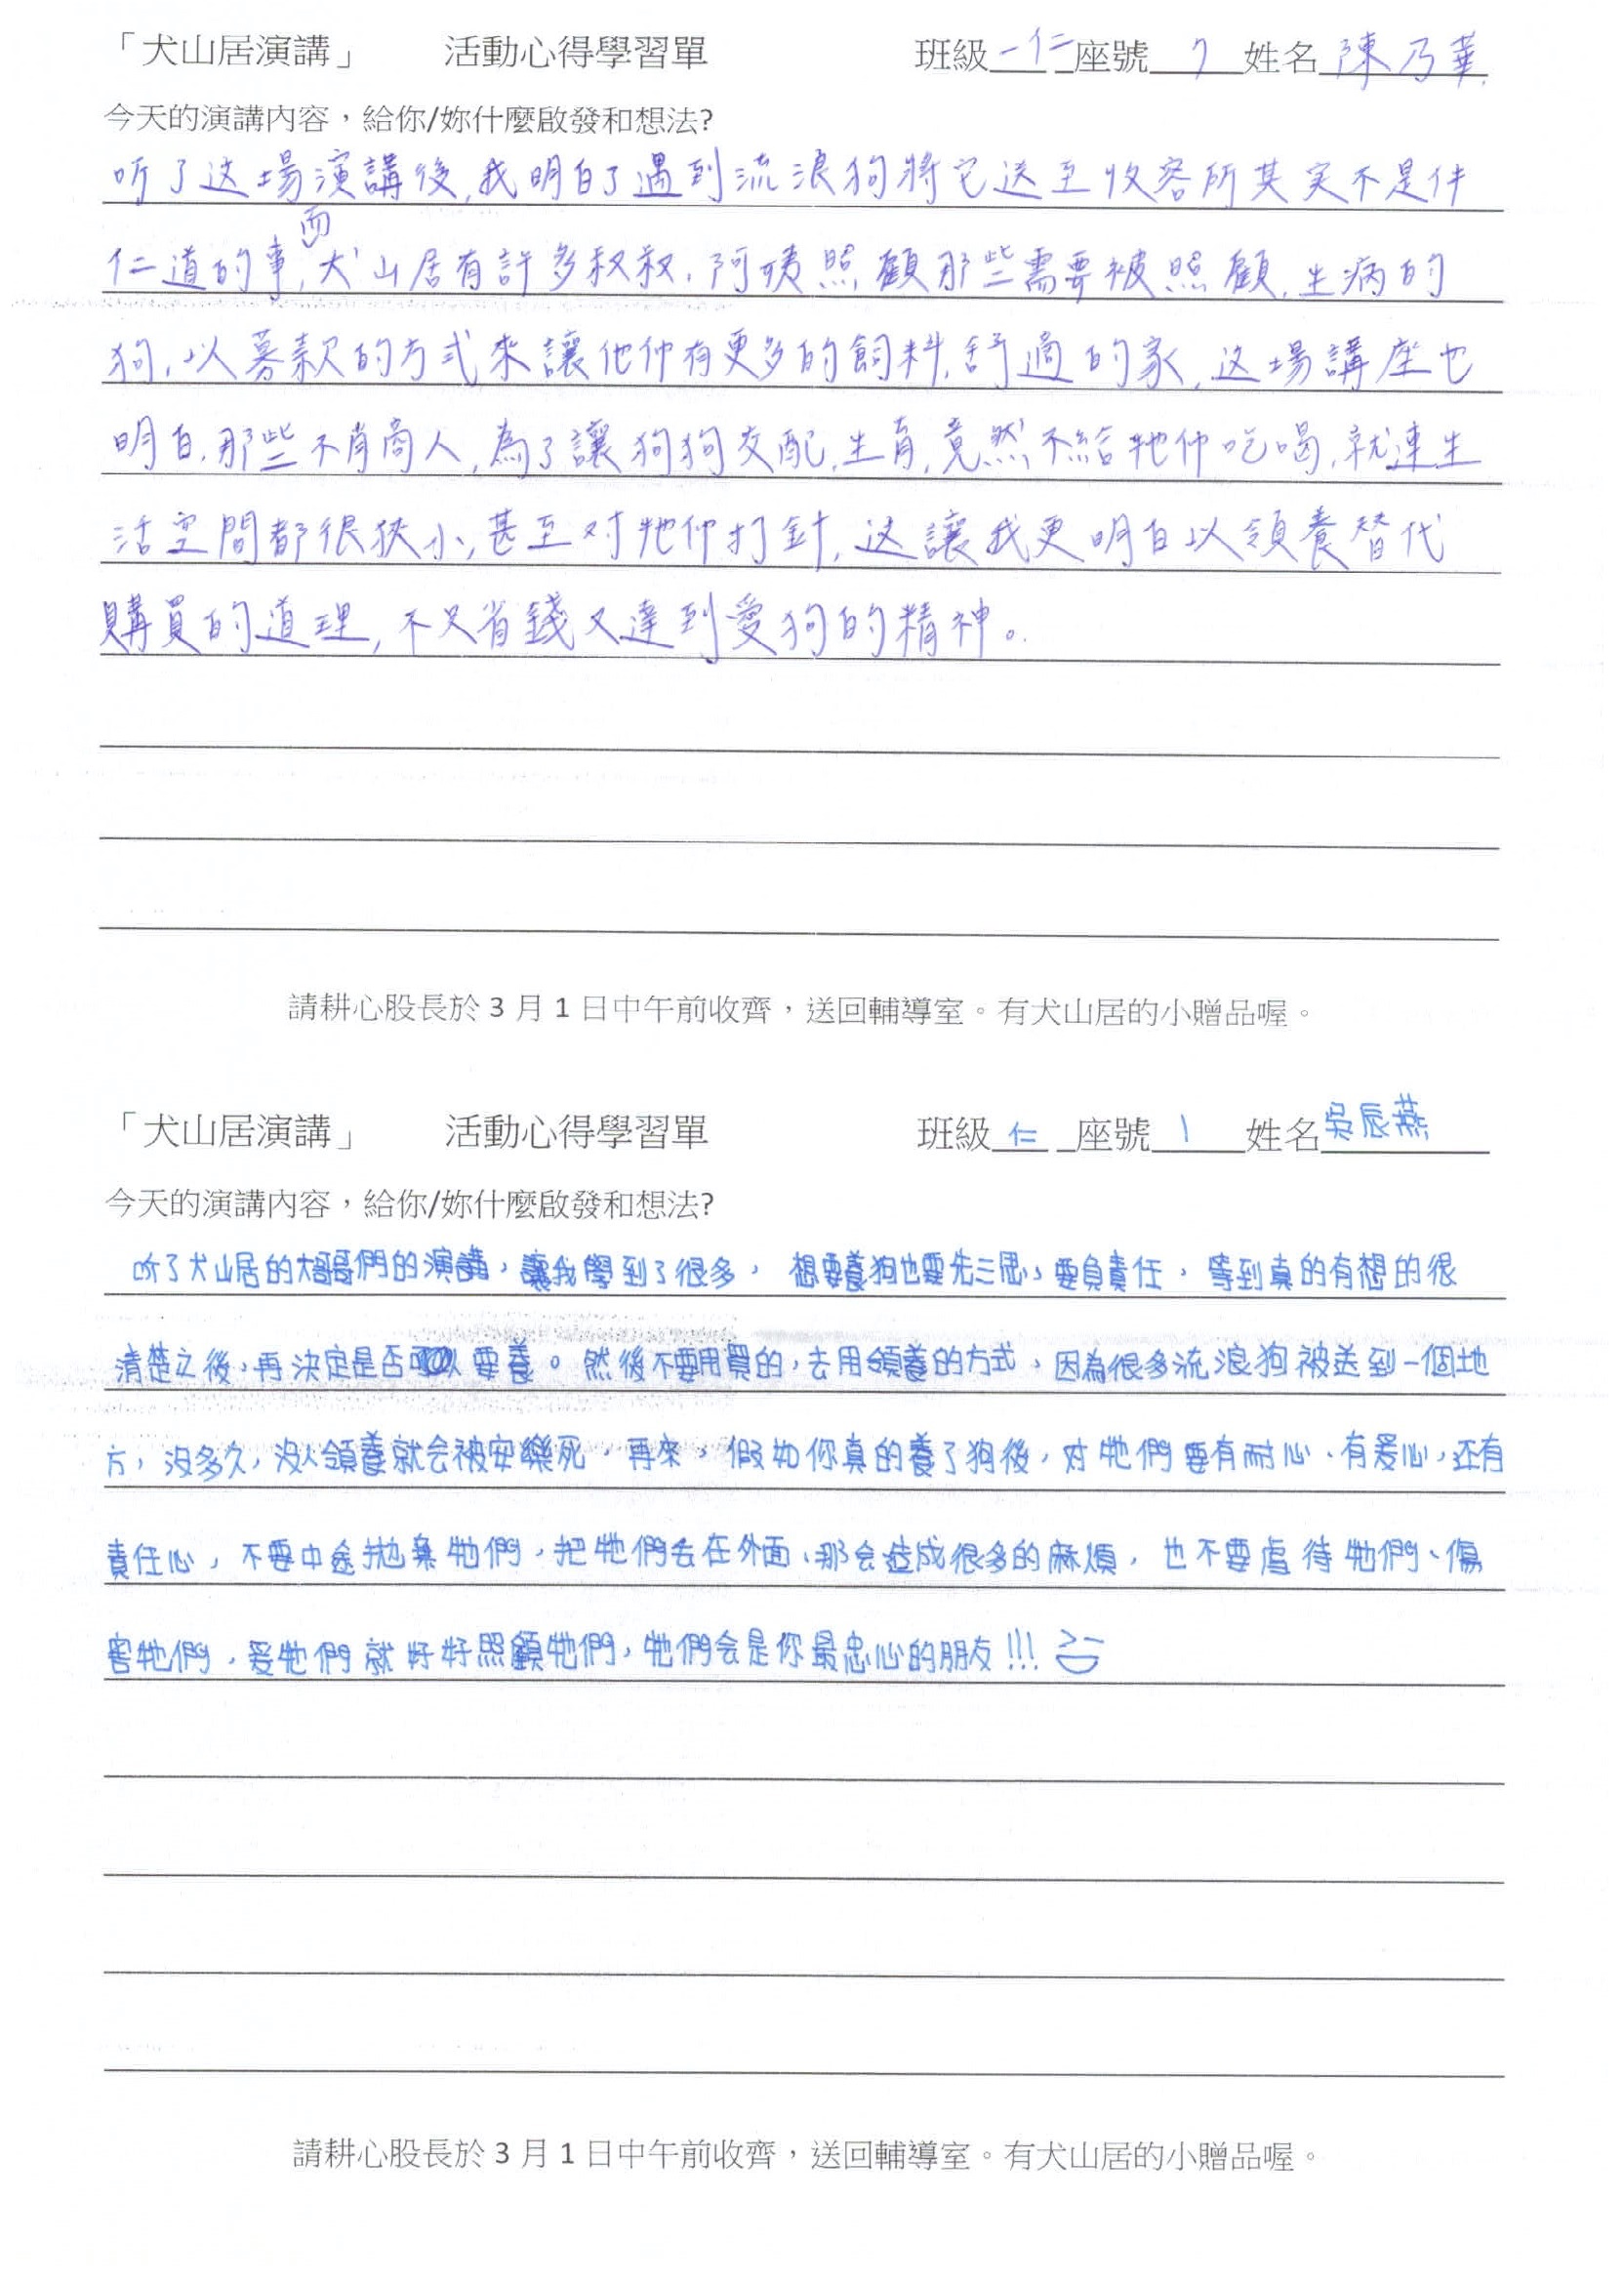 「犬山居演講」 活動心得學習單 班級一仁座號7姓名陳乃華
今天的演講內容，給你/妳什麼啟發和想法?
听了这場演講後,我明白了遇到流浪狗將它送至收容所其实不是件
仁道的事,而犬山居有許多叔叔、阿姨照顧那些需要被照顧、生病的
狗,以募款的方式來讓他们有更多的飼料,舒適的家,这場講座也
明白,那些不肖商人,為了讓狗狗交配,生育,竟然不給牠们吃喝,就連生
活空間都很狹小,甚至对牠们打針,这讓我更明白以領養替代
購買的道理,不只省錢又達到愛狗的精神。
請耕心股長於 3 月 1 日中午前收齊，送回輔導室。有犬山居的小贈品喔。
「犬山居演講」 活動心得學習單 班級仁座號1姓名吳辰燕
今天的演講內容，給你/妳什麼啟發和想法?
听了犬山居的大哥哥們的演講，讓我學到了很多，想要養狗也要先三思，要負責任，等到真的有想的很
清楚之後，再決定是否要養。然後不要用買的，去用領養的方式，因為很多流浪狗被送到一個地
方，沒多久，沒人領養就会被安樂死，再來，假如你真的養了狗後，对牠們要有耐心、有爱心，还有
責任心，不要中途拋棄牠們，把牠們丟在外面，那会造成很多的麻煩，也不要虐待牠們、傷
害牠們，爱牠們就好好照顧牠們，牠們会是你最忠心的朋友!!!
請耕心股長於 3 月 1 日中午前收齊，送回輔導室。有犬山居的小贈品喔。